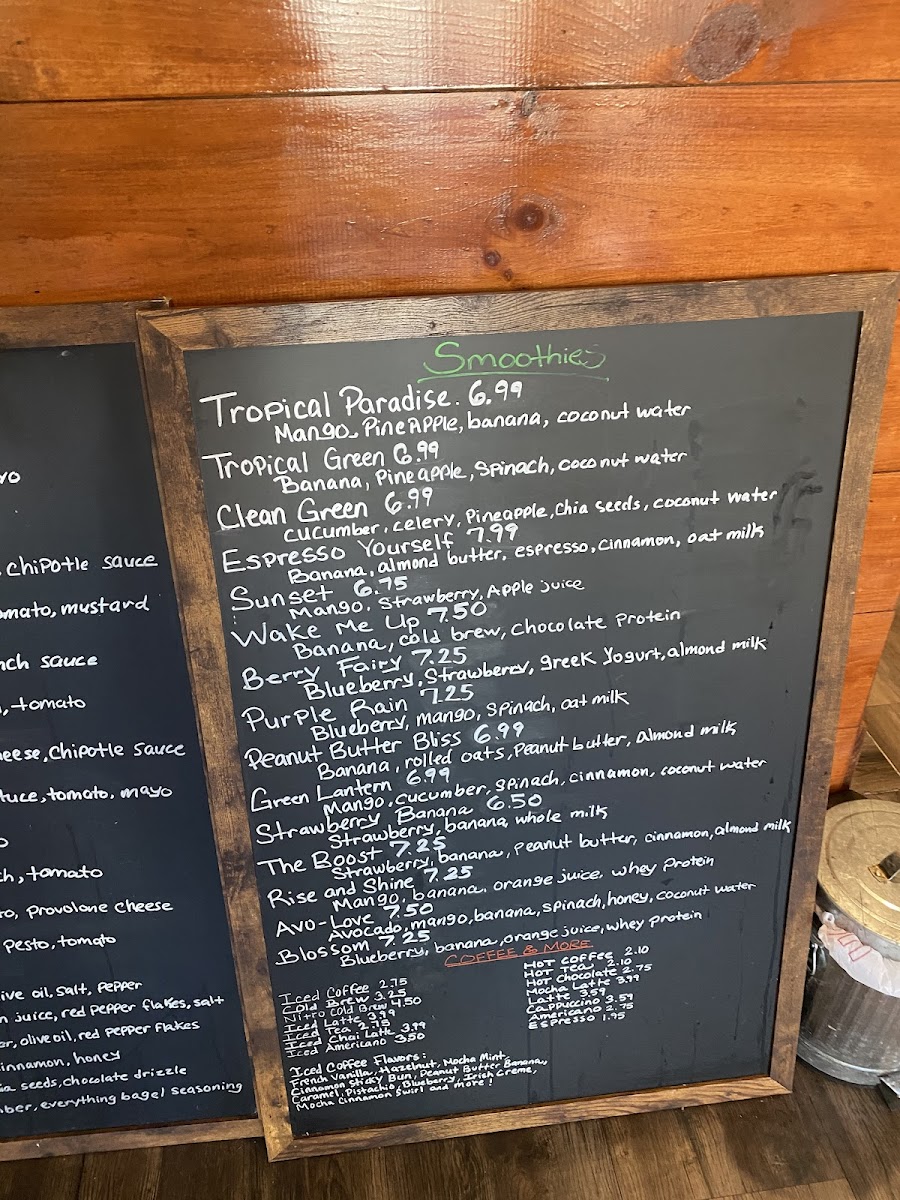 Smoothies
Tropical Paradise. 6.99
Mango, PineAPPle, banana, coconut water
Tropical Green 6.99
Banana, Pineapple, Spinach, coconut water
Clean Green 6.99
cucumber, celery, Pineapple, chia seeds, coconut water
Espresso Yourself 7.99
Banana, almond butter, espresso, cinnamon, oat milk
Sunset 6.75
Mango, Strawberry, Apple juice
Wake Me Up 7.50
Banana, cold brew, chocolate Protein
Berry Fairy 7.25
Blueberry, Strawberry, greek Yogurt, almond milk
Purple Rain 7.25
Blueberry, mango, spinach, oat milk
Peanut Butter Bliss 6.99
Banana, rolled oats, Peanut butter, almond milk
Green Lantern 6.99
Mango, cucumber, spinach, cinnamon, coconut water
Strawberry Banana 6.50
Strawberry, banana, whole milk
The Boost 7.25
Strawberry, banana, Peanut butter, cinnamon, almond milk
Rise and Shine 7.25
Mango, banana, orange juice, whey Protein
Avo-Love 7.50
Avocado, mango, banana, spinach, honey, coconut water
Blossom 7.25
Blueberry, banana, orange juice, whey protein
COFFEE & MORE
Iced Coffee 2.75
Cold Brew 3.25
Nitro Cold Brew 4.50
Iced Latte 3.99
Iced Tea 2.75
Iced Chai Latte 3.99
Iced Americano 3.50
HOT COFFEE 2.10
HOT Tea 2.10
HOT Chocolate 2.75
Mocha Latte 3.99
Latte 3.59
Cappuccino 3.59
Americano 2.75
ESPresso 1.95
Iced Coffee Flavors:
French Vanilla, Hazelnut, Mocha Mint,
Cinnamon Sticky Bun, Peanut Butter Banana,
Caramel, Pistachio, Blueberry, Irish Creme,
Mocha Cinnamon Swirl and more!
chipotle sauce
mustard
sauce
tomato
chipotle sauce
tomato, mayo
tomato
Provolone cheese
Pesto, tomato
oil, salt, Pepper
juice, red pepper flakes, salt
olive oil, red Pepper flakes
honey
seeds, chocolate drizzle
everything bagel seasoning